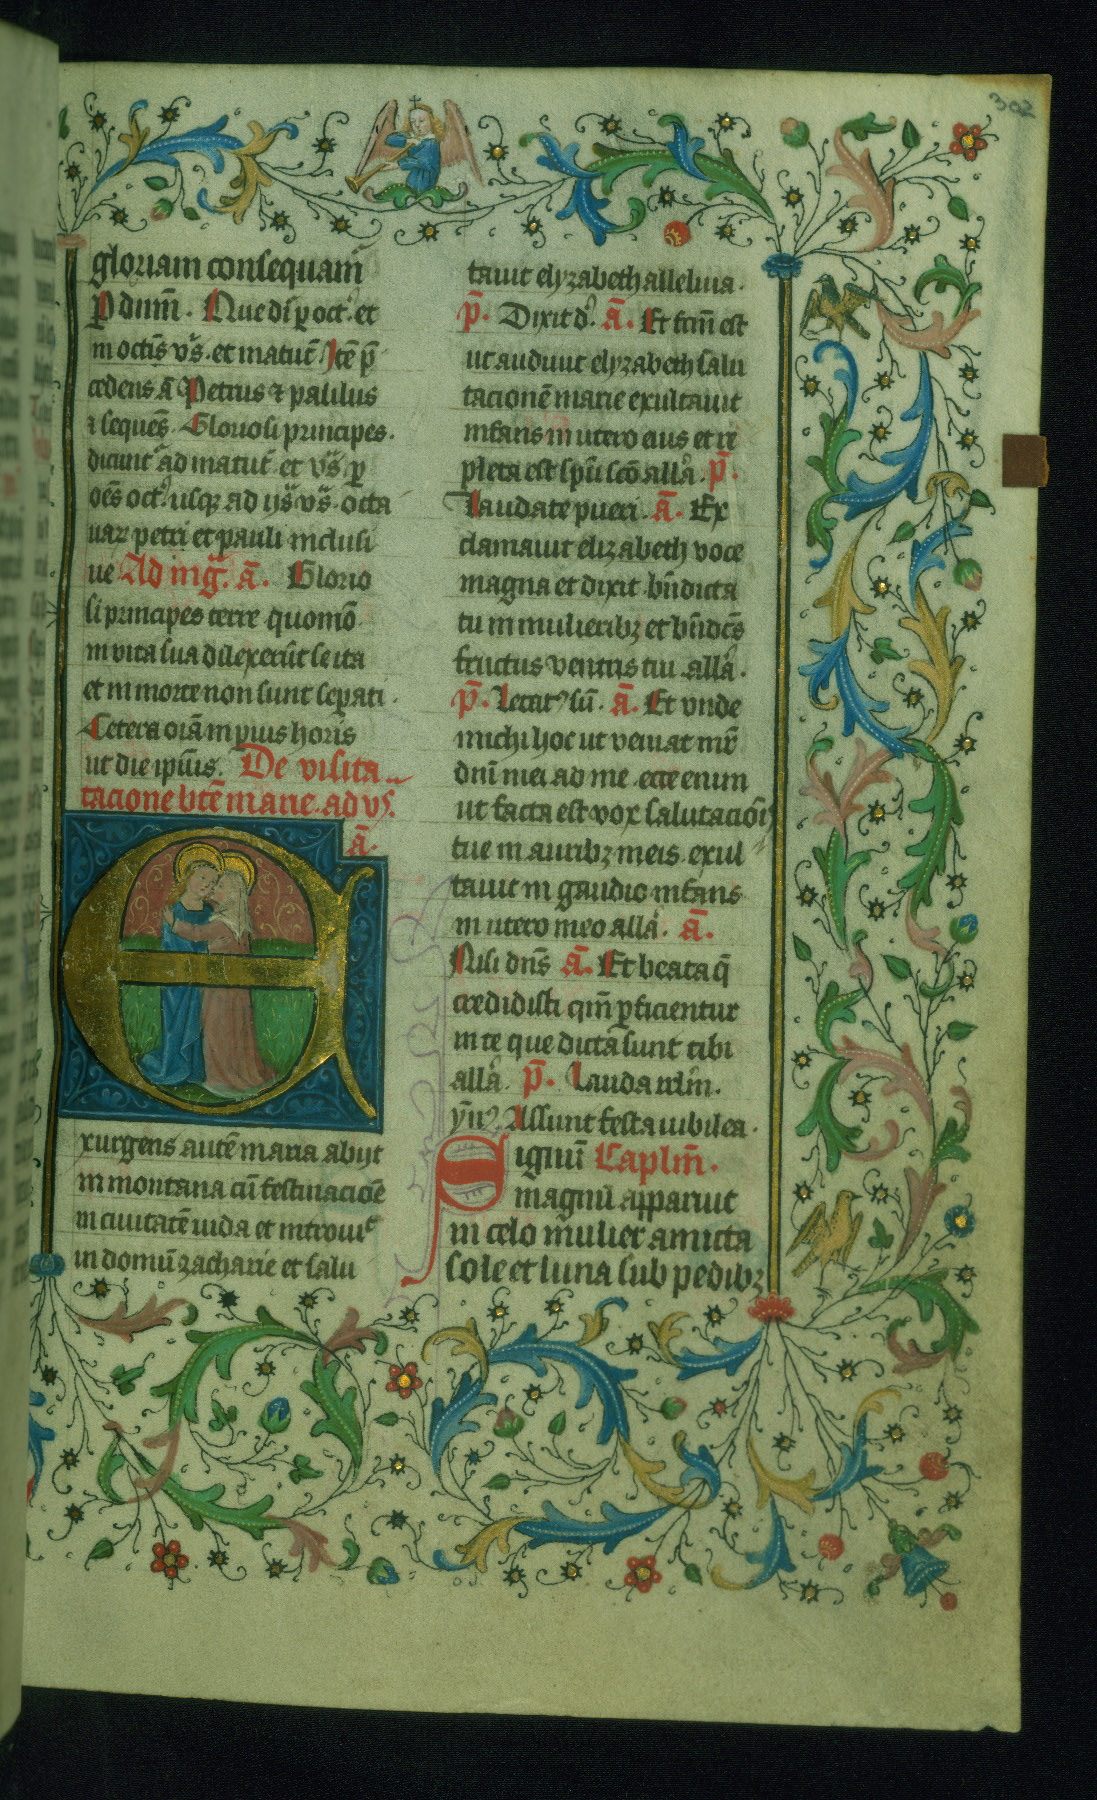 302
gloriam consequam̃
P dnm̃. Nue dı̃ p oct. et
in octĩs vs̃. et matut̃ Itẽ p̃
cedens ã Petrus & paulus
& sequẽs. Gloriosi principes.
dicunt᷑ ad matut̃. et vs̃ p
oẽs oct. usq̃ ad ijs̃ vs̃. octa
uaꝝ petri et pauli inclusi
ue Ad mg̃. ã. Glorio
si principes terre quomõ
in vita sua dilexerũt se ita
et in morte non sunt sepati.
Cetera oĩa in p̃us horis
ut die ip̃ius. De visita
tacione btẽ marie. ad vs̃.
ã.
Exurgens autẽ maria abijt
in montana cũ festinaciõe
in ciuitatẽ iuda et introuit
in domũ zacharie et salu
tauit elyzabeth alleluia.
p̃. Dixit d. ã. Et fcm̃ est
ut audiuit elyzabeth salu
tacionẽ marie exultauit
infans in utero eius et re
pleta est spũ scõ allã. p̃.
Laudate pueri. ã. Ex
clamauit elizabeth voce
magna et dixit bñdicta
tu in mulieribꝫ et bñdcs̃
fructus ventris tui allã.
p̃. Letat᷑ sũ. ã. Et vnde
michi hoc ut veniat mr̃
dnĩ mei ad me. ecce enim
ut facta est vox salutaciõis
tue in auribꝫ meis. exul
tauit in gaudio infans
in utero meo allã. ã.
Nisi dñs ã. Et beata q̃
credidisti qm̃ pficientur
in te que dicta sunt tibi
allã. p̃. Lauda irlm̃.
ym̃ꝰ. Assunt festa iubilea.
Signũ Caplm̃.
magnũ apparuit
in celo mulier amicta
sole et luna sub pedibꝫ